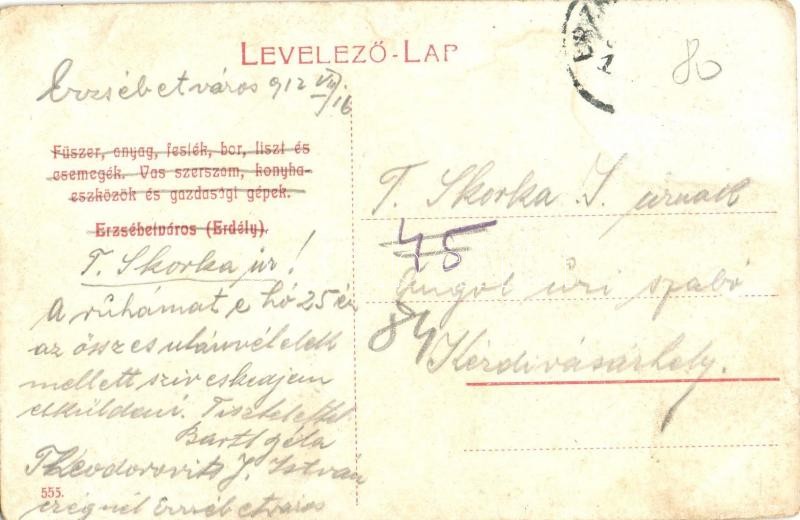 LEVELEZŐ-LAP
Erzsébetváros 912 VII/16
Füszer, anyag, festék, bor, liszt és
csemegék. Vas szerszam, konyha-
eszközök és gazdasági gépek.
Erzsébetváros (Erdély).
T. Skorka úr!
A ruhámat e hó 25 én
az összes utánvételek
mellett sziveskedjem
elküldeni. Tisztelettel
Bartl Géla
Theodorovits J. István
cégnél Erzsébetváros
555.
80
T. Skorka J. úrnak
45
Angol úri szabó
84
Kézdivásárhely.